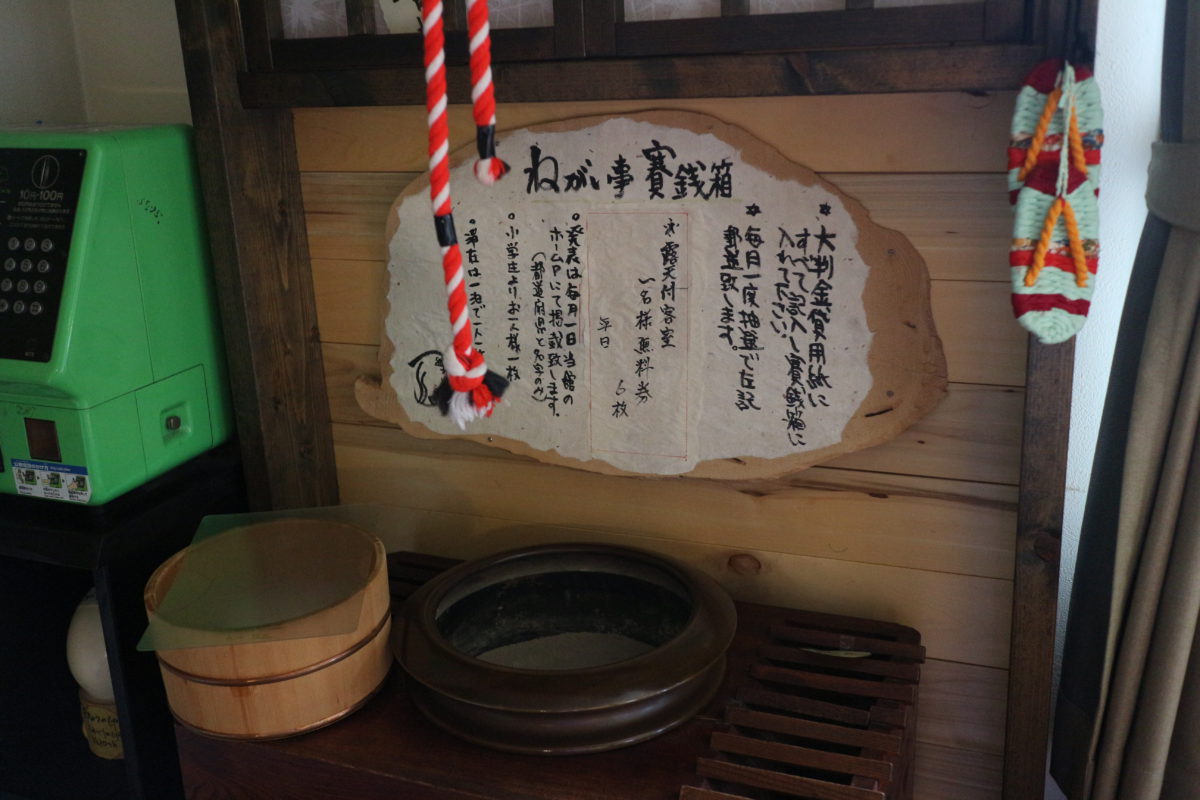 ねがい事賽銭箱
★大判金貨用紙に
すべて記入し賽銭箱に
入れて下さい。
★毎月一度抽選で左記
郵送致します。
露天付客室
一名様無料券
6枚
平日
・発表は毎月一日当館の
ホームPにて掲載致します。
(都道府県と名字のみ)
・小学生よりお一人様一枚
10円・100円